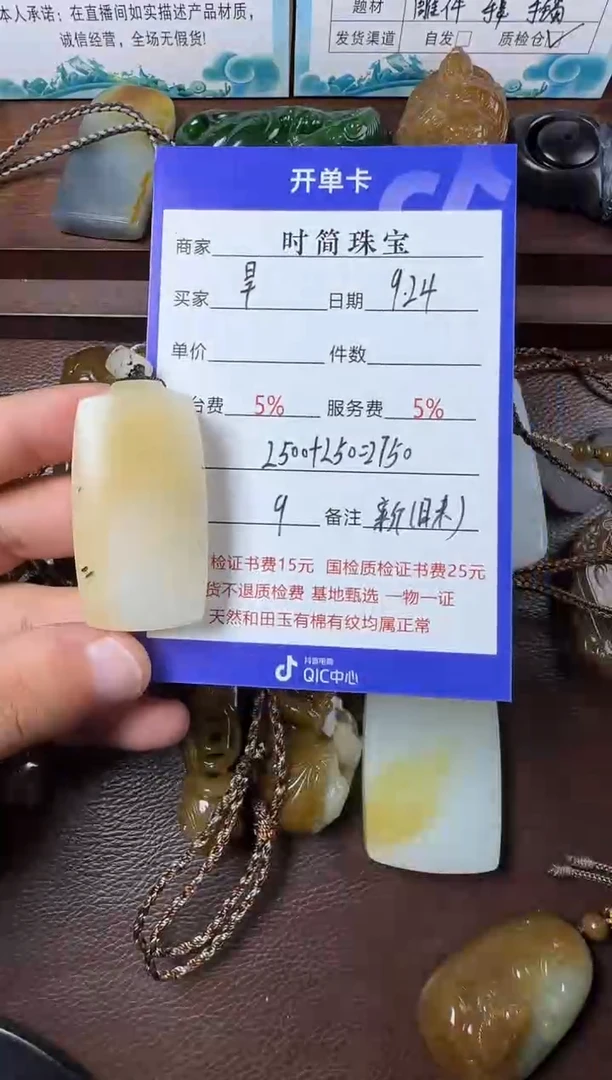 本人承诺：在直播间如实描述产品材质，
诚信经营，全场无假货!
题材
发货渠道 自发□ 质检仓
开单卡
商家 时简珠宝
买家 日期 9.24
单价 件数
台费 5% 服务费 5%
2500+250=2750
9 备注 新(
检证书费15元 国检质检证书费25元
货不退质检费 基地甄选 一物一证
天然和田玉有棉有纹均属正常
抖音电商
QIC中心